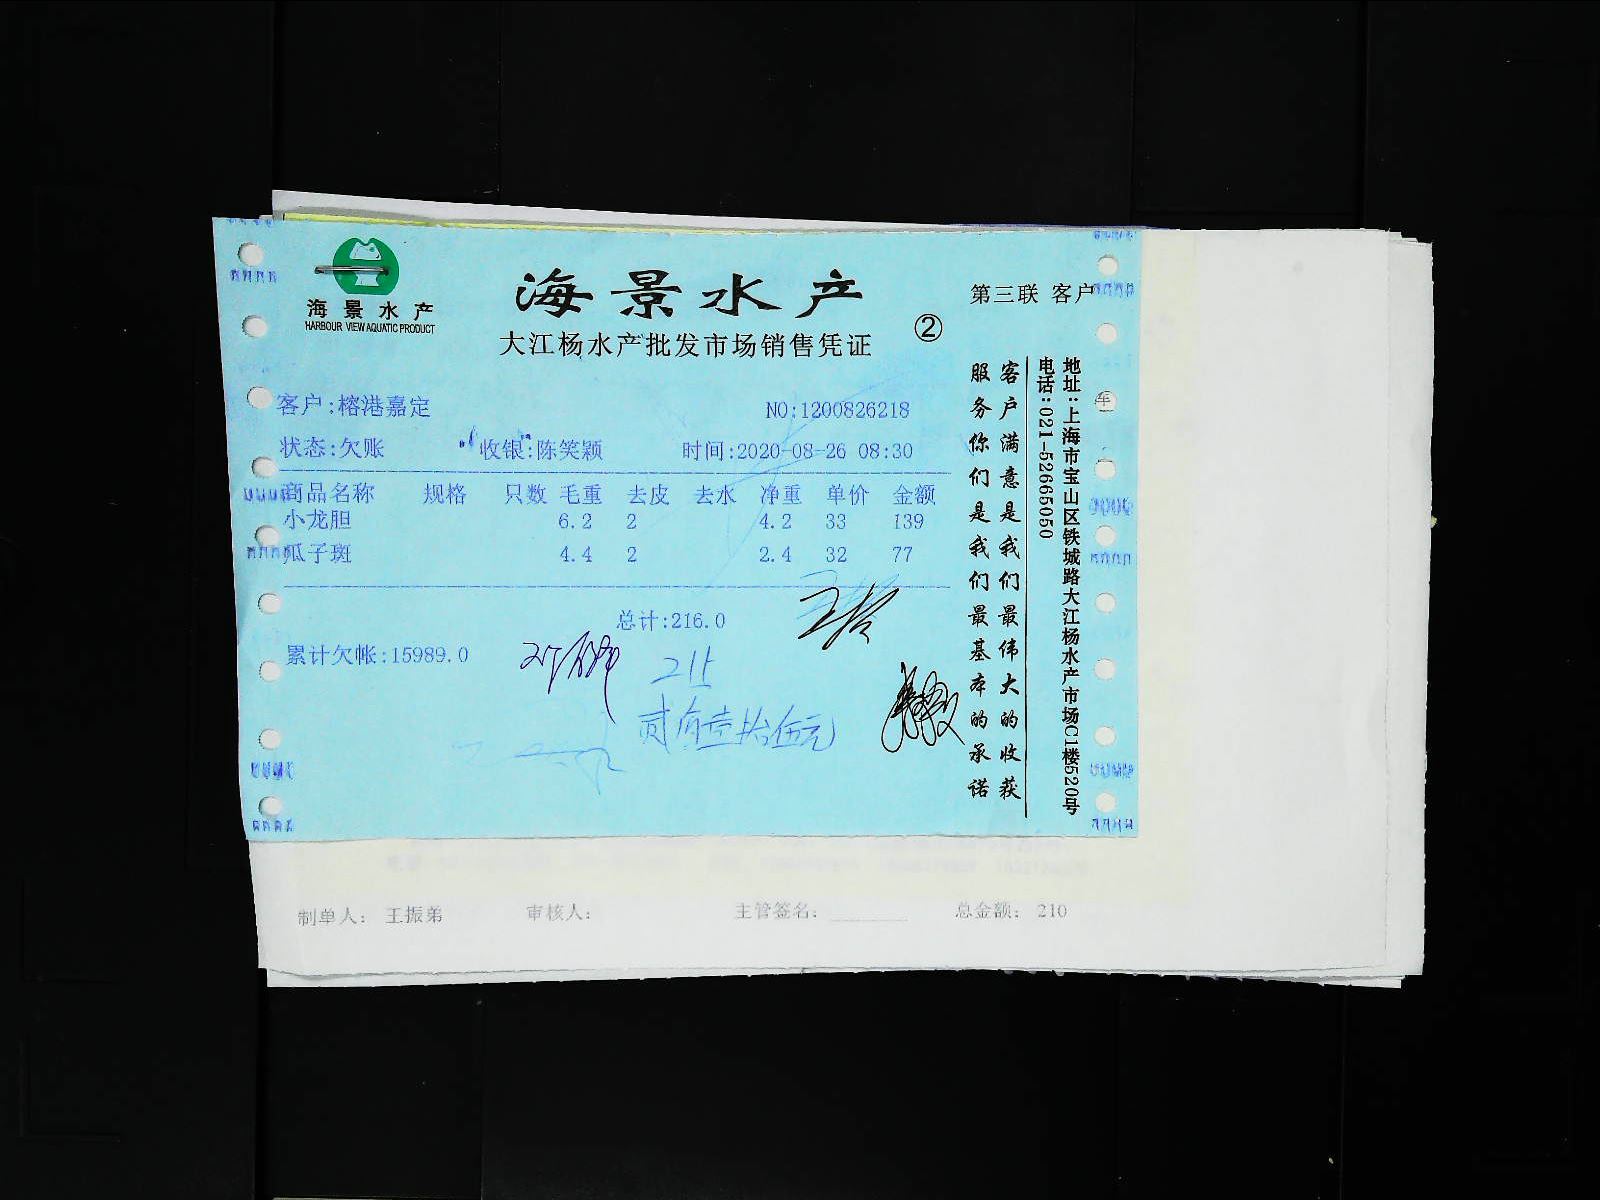 海景水产
HARBOUR VIEW AQUATIC PRODUCT
海景水产
大江杨水产批发市场销售凭证
②
第三联 客户
客户:榕港嘉定 NO:1200826218
状态:欠账 收银:陈笑颖 时间:2020-08-26 08:30
商品名称 规格 只数 毛重 去皮 去水 净重 单价 金额
小龙胆 6.2 2 4.2 33 139
瓜子斑 4.4 2 2.4 32 77
总计:216.0
累计欠帐:15989.0
215
贰佰壹拾伍元
客户满意是我们最伟大的收获
服务你们是我们最基本的承诺
地址:上海市宝山区铁城路大江杨水产市场C1楼520号
电话:021-52665050
车
制单人: 王振弟 审核人: 主管签名: 总金额: 210